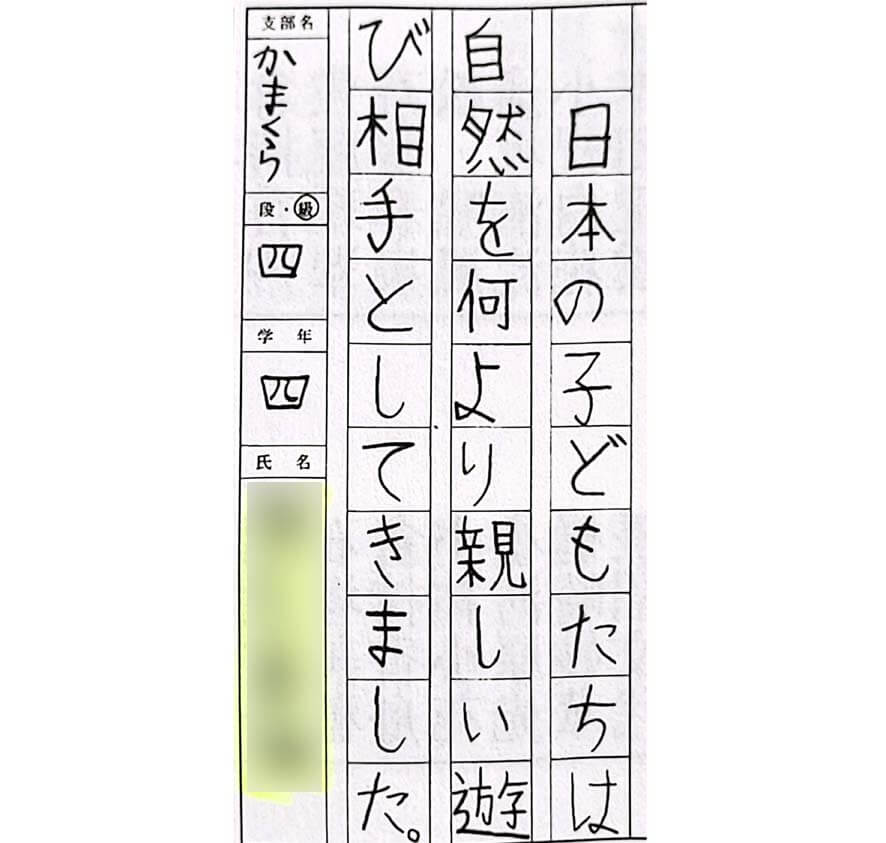 日本の子どもたちは
自然を何より親しい遊
び相手としてきました。
支部名
かまくら
段・級
四
学年
四
氏名